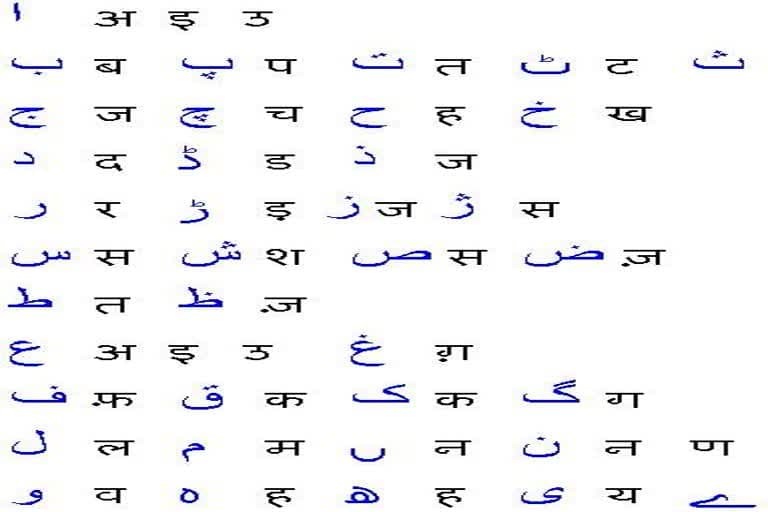 ا अ इ उ
ب ब پ प ت त ٹ ट ث
ج ज چ च ح ह خ ख
د द ڈ ड ذ ज
ر र ڑ ड़ ز ज ژ स
س स ش श ص स ض ज़
ط त ظ ज़
ع अ इ उ غ ग़
ف फ़ ق क ک क گ ग
ل ल م म ں न ن न ण
و व ہ ह ھ ह ی य ے